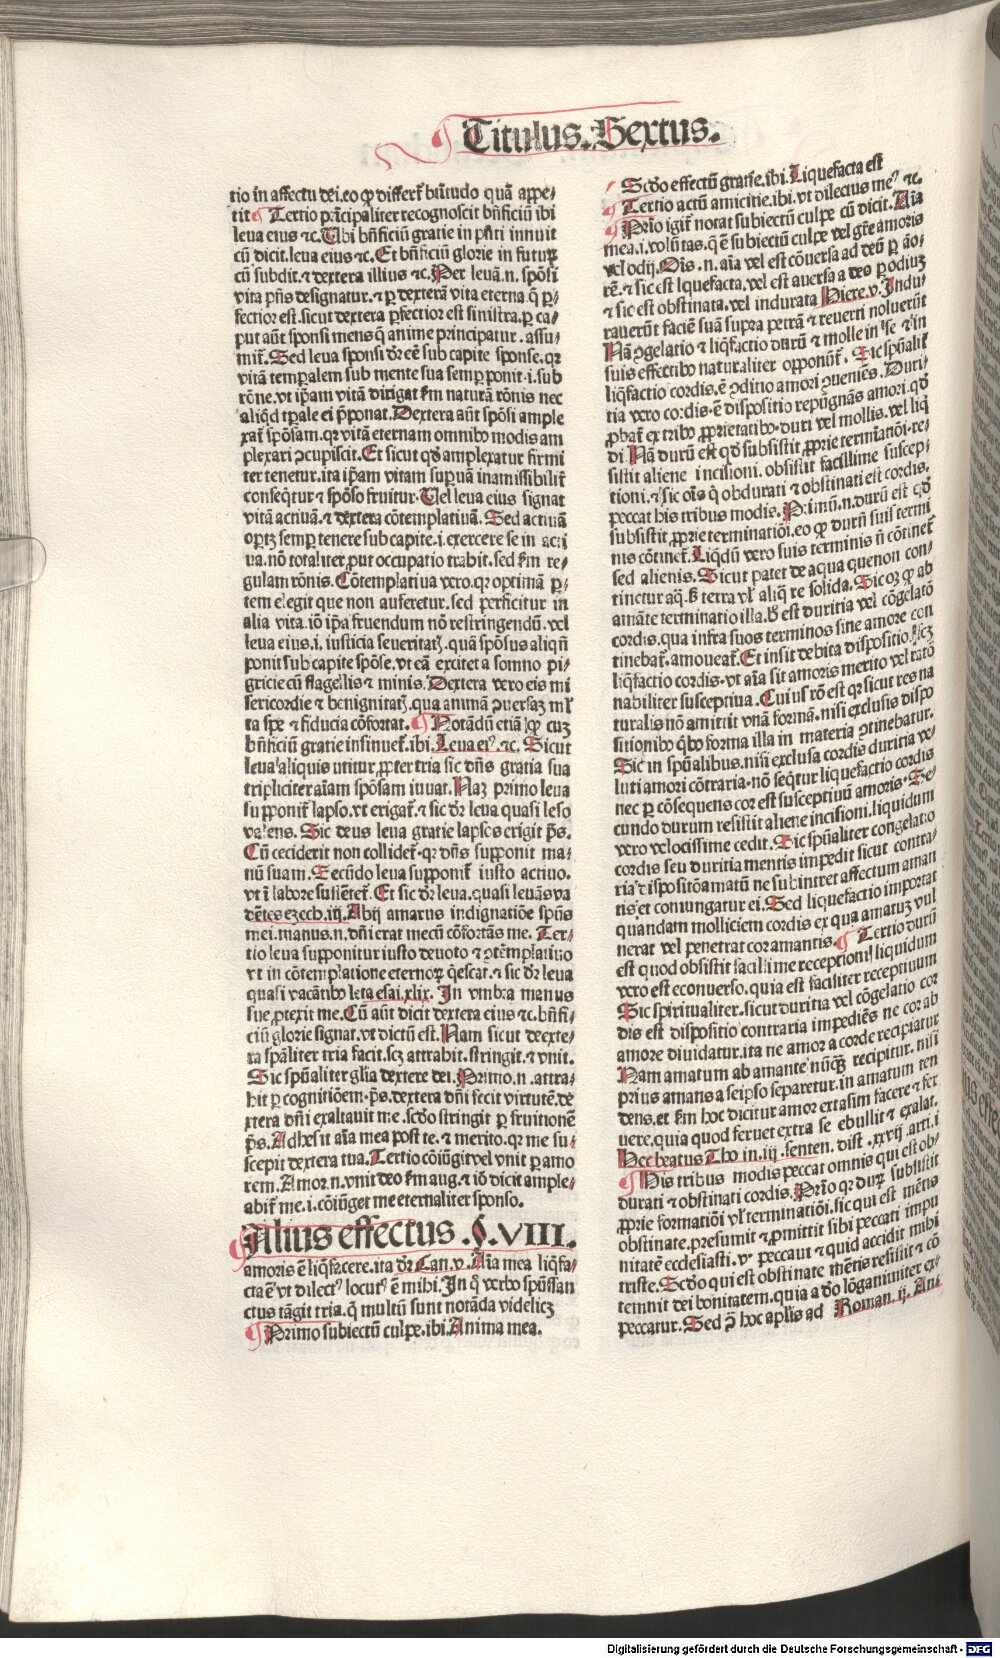 Titulus. Sextus.
tio in affectu dei. eo ꝙ differt̄ bt̄itudo quā appe⸗
tit ¶ Tertio prīcipaliter recognoscit bn̄ficiū ibi
leua eius ⁊c. Vbi bn̄ficiū gratie in pn̄ti innuit
cū dicit. leua eius ⁊c. Et bn̄ficiū glorie in futuꝝ
cū subdit. ⁊ dextera illius ⁊c. Per leuā .n. spōsi
vita pn̄s designatur. ⁊ ꝑ dexterā vita eterna. q̄ ꝑ⸗
fectior est. sicut dextera ꝑfectior est sinistra. ꝑ ca⸗
put aūt sponsi mens q̄ anime principatur. assu⸗
mit̄. Sed leua sponsi dr̄ eē sub capite sponse. qꝛ
vitā temꝑalem sub mente sua semꝑ ponit .i. sub
rōne. vt ip̄am vitā dirigat ẜm naturā rōnis nec
aliqd tꝑale ei p̄ponat. Dextera aūt spōsi ample
xat̄ spōsam. qꝛ vitā eternam omnibꝰ modis am
plexari ꝯcupiscit. Et sicut qd̄ amplexatur firmi
ter tenetur. ita ip̄am vitam supuā inamissibilit̄
conseq̄tur ⁊ spōso fruitur. Uel leua eius signat
vitā actiuā. ⁊ dextera cōtemplatiuā. Sed actiuā
oꝑtꝫ semꝑ tenere sub capite .i. exercere se in acti
ua. nō totaliter ꝓut occupatio trahit. sed ẜm re⸗
gulam rōnis. Cōtemplatiua vero. qꝛ optimā ꝑ⸗
tem elegit que non auferetur. sed perficitur in
alia vita. iō ip̄a fruendum nō restringendū. vel
leua eius .i. iusticia seueritatꝭ. quā spōsus aliqn̄
ponit sub capite spōse. vt eā excitet a somno pi⸗
gricie cū flagellis ⁊ minis. Dextera vero eiꝰ mi
sericordie ⁊ benignitatꝭ. qua animā ꝯuersaꝫ ml̄
ta spe ⁊ fiducia cōfortat. ¶ Notādū etiā ꝙ cuꝫ
bn̄ficiū gratie insinuet̄. ibi. Leua eiꝰ. ⁊c. Sicut
leua aliquis vtitur ꝓpter tria sic dn̄s gratia sua
tripliciter aīam spōsam iuuat. Naꝫ primo leua
supponit̄ lapso. vt erigat̄. ⁊ sic dr̄ leua quasi leso
valens. Sic deus leua gratie lapsos erigit p̄s.
Cū ceciderit non collidet̄. qꝛ dn̄s supponit ma⸗
nū suam. Secūdo leua supponit̄ iusto actiuo.
vt ī labore sustētet̄. Et sic dr̄ leua. quasi leuās va
dētes ezech. iij. Abij amarus indignatiōe spūs
mei. manus .n. dn̄i erat mecū cōfortās me. Ter⸗
tio leua supponitur iusto deuoto ⁊ ꝯtēplatiuo
vt in cōtemplatione eternoꝝ q̄escat. ⁊ sic dr̄ leua
quasi vacātibꝰ leta esai. xlix. In vmbra manus
sue ꝓtexit me. Cū aūt dicit dextera eius ⁊c. bn̄fi⸗
ciū glorie signat. vt dictū est. Nam sicut dexte⸗
ra spāliter tria facit. scꝫ attrahit. stringit. ⁊ vnit.
Sic spūaliter gl̄ia dextere dei. Primo .n. attra⸗
hit ꝑ cognitiōem. p̄s. dextera dn̄i fecit virtutē. de
xtera dn̄i exaltauit me. scd̄o stringit ꝑ fruitionē
p̄s. Adhesit aīa mea post te. ⁊ merito. qꝛ me su⸗
scepit dextera tua. Tertio cōiūgit vel vnit ꝑ amo
rem. Amor .n. vnit deo ẜm aug. ⁊ iō dicit ample⸗
abit̄ me .i. cōiūget me eternaliter sponso.
Alius effectus .§. VIII.
amoris ē liq̄facere. ita dr̄ Can. v. Aīa mea liq̄fa⸗
cta ē vt dilectꝰ locutꝰ ē mihi. In q̄ verbo spūssan
ctus tāgit tria. q̄ multū sunt notāda videlicꝫ
¶ Primo subiectū culpe. ibi. Anima mea.
Scd̄o effectū gratie. ibi. Liquefacta est
¶ Tertio actū amicitie. ibi. vt dilectus meꝰ ⁊c.
¶ Prīo igit̄ notat subiectū culpe cū dicit. Aīa
mea .i. volūtas. q̄ ē subiectū culpe vel gr̄e amoris
vel odij. Ois .n. aīa vel est cōuersa ad deū ꝑ āo⸗
rē. ⁊ sic est lquefacta. vel est auersa a deo ꝑ odiuꝫ
⁊ sic est obstinata. vel indurata Hiere. v. Indu⸗
rauerūt faciē suā supra petrā ⁊ reuerti noluerūt
Nā ꝯgelatio ⁊ liq̄factio durū ⁊ molle in se ⁊ in
suis effectibꝰ naturaliter opponūt̄. Sic spūalit̄
liq̄factio cordis. ē ꝯditio amori ꝯueniēs. Duri⸗
tia vero cordis. ē dispositio repugnās amori. qd̄
ꝓbat̄ ex tribꝰ ꝓprietatibꝰ. duri vel mollis. vel liq̄
di Nā durū est qd̄ subsistit ꝓprie termīatiōi. re⸗
sistit aliene incisioni. obsistit facillime suscep⸗
tioni. ⁊ sic ois q̄ obdurati ⁊ obstinati est cordis.
peccat his tribus modis. Primū .n. durū est qd̄
subsistit ꝓprie terminatiōi. eo ꝙ durū suis termi
nis cōtinet̄. Liq̄dū vero suis terminis n̄ cōtinet̄
sed alienis. Sicut patet de aqua que non con⸗
tinctur aq̄. ẜ terra vl̄ aliq̄ re solida. Sic oꝫ ꝙ ab
amāte terminatio illa. ꝙ est duritia vel cōgelatō
cordis. qua infra suos terminos sine amore con
tinebat̄. amoueat̄. Et insit debita dispositio. scꝫ
liq̄factio cordis. vt aīa sit amoris merito vel ratō
nabiliter susceptiua. Cuiꝰ rō est qꝛ sicut res na
turalis nō amittit vnā formā. nisi exclusis dispo
sitionibꝰ q̄bꝰ forma illa in materia ꝯtinebatur.
Sic in spūalibus. nisi exclusa cordis duritia ve⸗
luti amori cōtraria. nō seq̄tur liquefactio cordis
nec ꝑ cōsequens cor est susceptiuū amoris. Se⸗
cundo durum resistit aliene incisioni. liquidum
vero velocissime cedit. Sic spūaliter congelatio
cordis seu duritia mentis impedit sicut contra⸗
ria dispositō amatū ne subintret affectum aman
tis et coniungatur ei. Sed liquefactio importat
quandam molliciem cordis ex qua amatuꝫ vul
nerat vel penetrat cor amantis. ¶ Tertio durū
est quod obsistit facillime receptioni liquidum
vero est econuerso. quia est faciliter receptiuum
Sic spiritualiter. sicut duritia vel cōgelatio cor
dis est dispositio contraria impediēs ne cor ab
amore diuidatur. ita ne amor a corde recipiatur
Nam amatum ab amante nūqꝫ recipitur. nisi
prius amans a seipso separetur. in amatum ten
dens. et ẜm hoc dicitur amor extasim facere ⁊ fer
uere. quia quod feruet extra se ebullit ⁊ exalat.
Hec beatus Tho. in. iij. senten. dist. xxvij. arti. i
¶ His tribus modis peccat omnis qui est ob⸗
durati ⁊ obstinati cordis. Prīo qꝛ duꝝ subsistit
ꝓprie formatiōi vl̄ terminatiōi. sic qui est mētis
obstinate. presumit ⁊ ꝓmittit sibi peccati impu
nitatē ecclesiasti. v. peccaui ⁊ quid accidit mihi
triste. Scd̄o qui est obstinate mētis resistit ⁊ cō
temnit dei bonitatem. quia a deo lōganimiter ex⸗
peccatur. Sed ꝯ hoc apl̄us ad Roman. ij. An
Digitalisierung gefördert durch die Deutsche Forschungsgemeinschaft - DFG